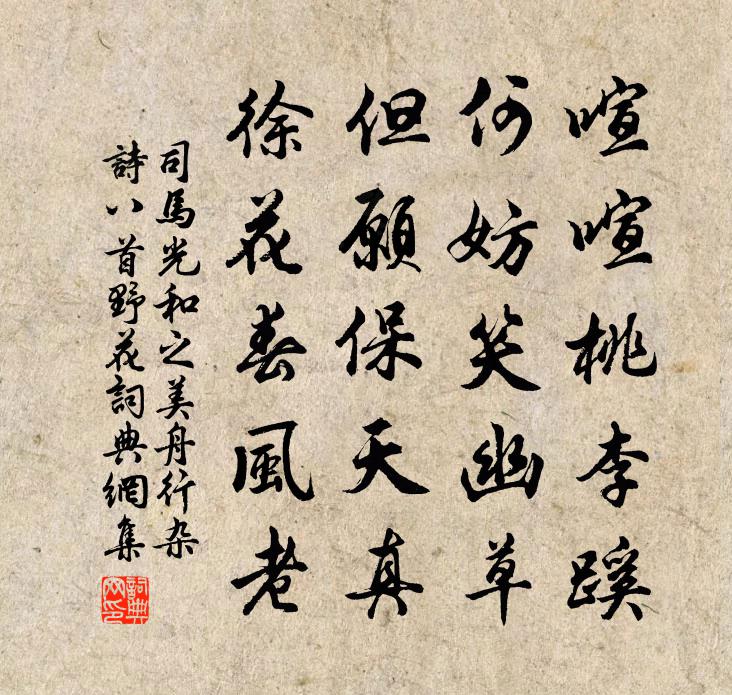 喧喧桃李蹊
何妨笑幽草
但願保天真
徐花春風老
司馬光和之美舟行杂
詩八首野花詞典網集
詞典
网印